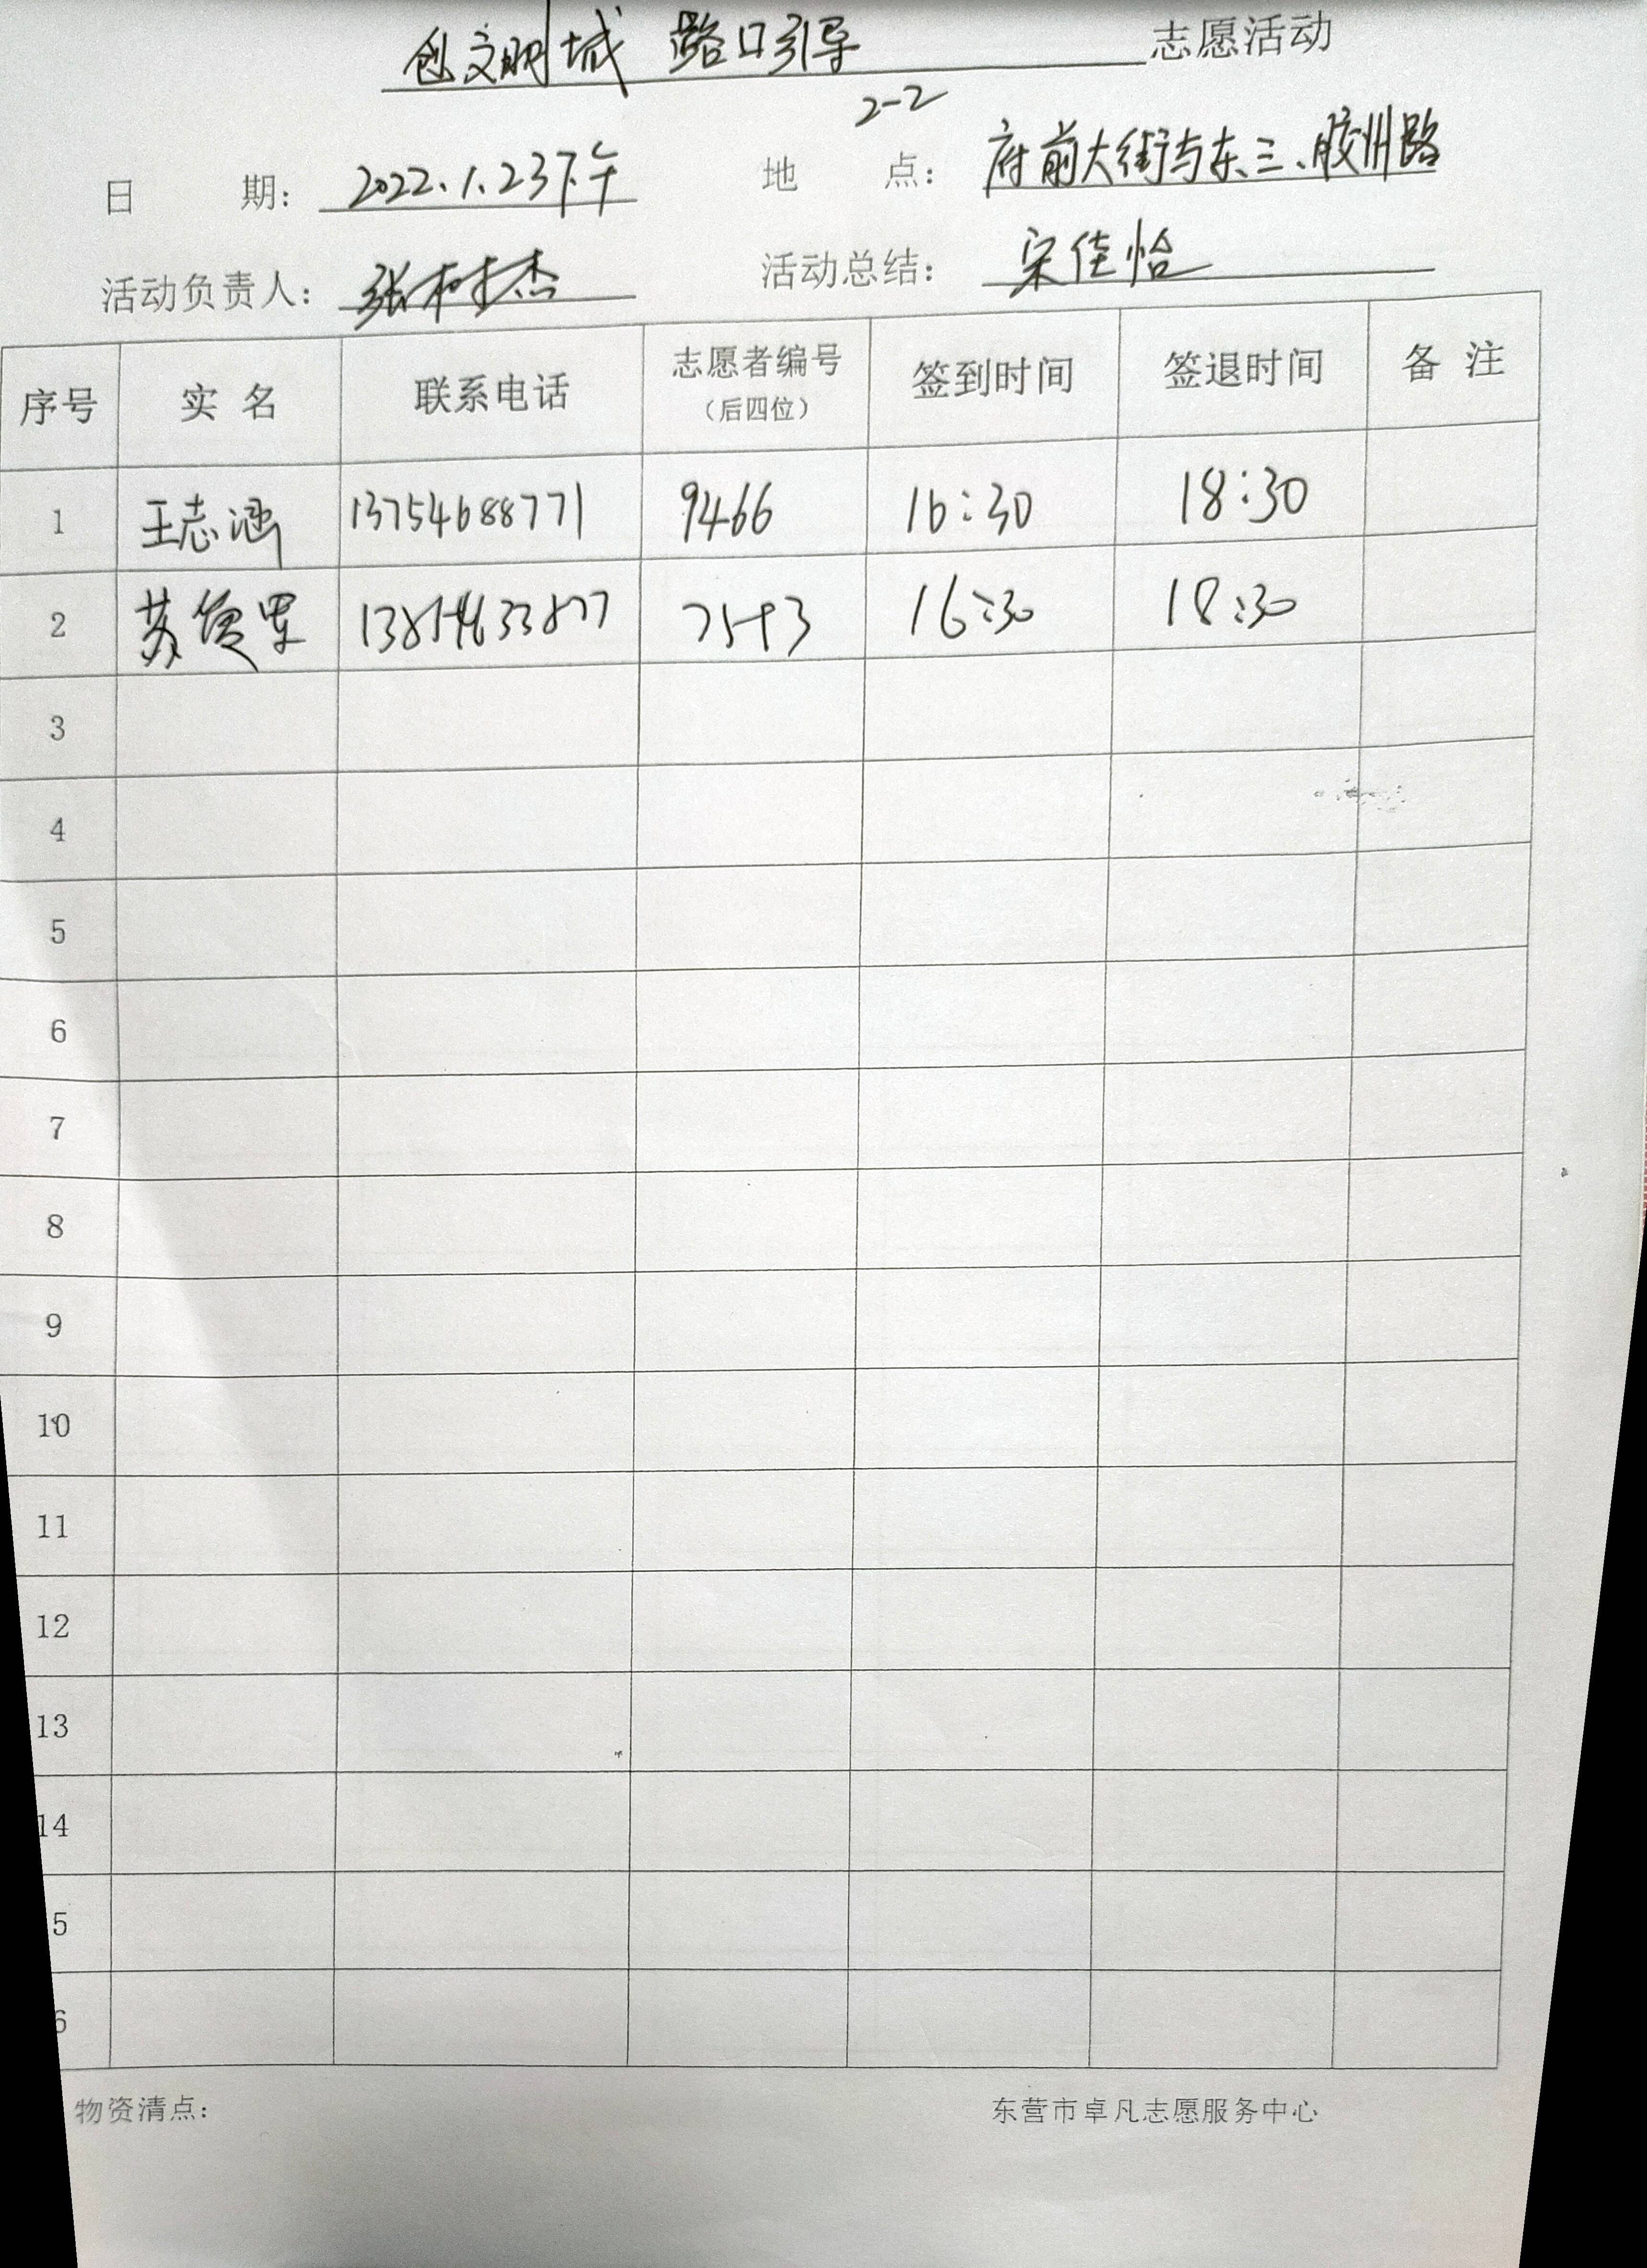 创文明城 路口引导 志愿活动
2-2
日 期: 2022.1.23下午 地 点: 府前大街与东三、胶州路
活动负责人: 张树杰 活动总结: 宋佳怡
序号 实 名 联系电话 志愿者编号 (后四位) 签到时间 签退时间 备 注
1 王志涵 13754688771 9466 16:30 18:30
2 苏 16:30 18:30
3
4
5
6
7
8
9
10
11
12
13
14
5
6
物资清点: 东营市卓凡志愿服务中心